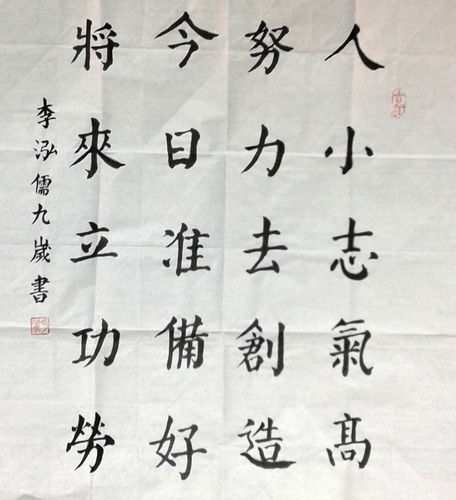 人小志氣高
努力去創造
今日准備好
將來立功勞
李泓儒九歲書